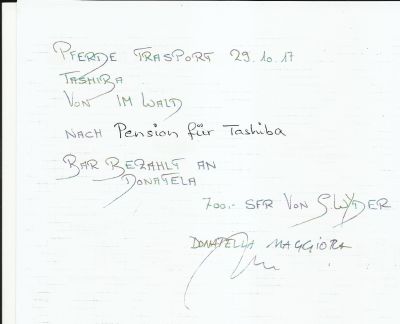 PFERDE TRASPORT 29.10.17
TASHIBA
VON IM WALD
NACH Pension für Tashiba
BAR BEZAHLT AN
DONATELA
700.- SFR VON
DONATELLA MAGGIORA